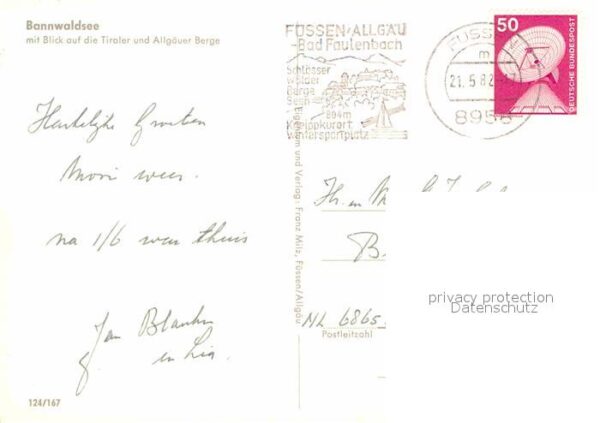 Bannwaldsee
mit Blick auf die Tiroler und Allgäuer Berge
FÜSSEN/ALLGÄU
-Bad Faulenbach
Schlösser
Wälder
Berge
Seen
804m
Kneippkurort
Wintersportplatz
FÜSSEN
m
21.5.82
8958
50
DEUTSCHE BUNDESPOST
Hartelijke Groeten
Mooi weer.
na 1/6 weer thuis
Jan
en Lia.
Eigentum und Verlag: Franz Milz, Füssen/Allgäu
NL 6865
Postleitzahl
privacy protection
Datenschutz
124/167